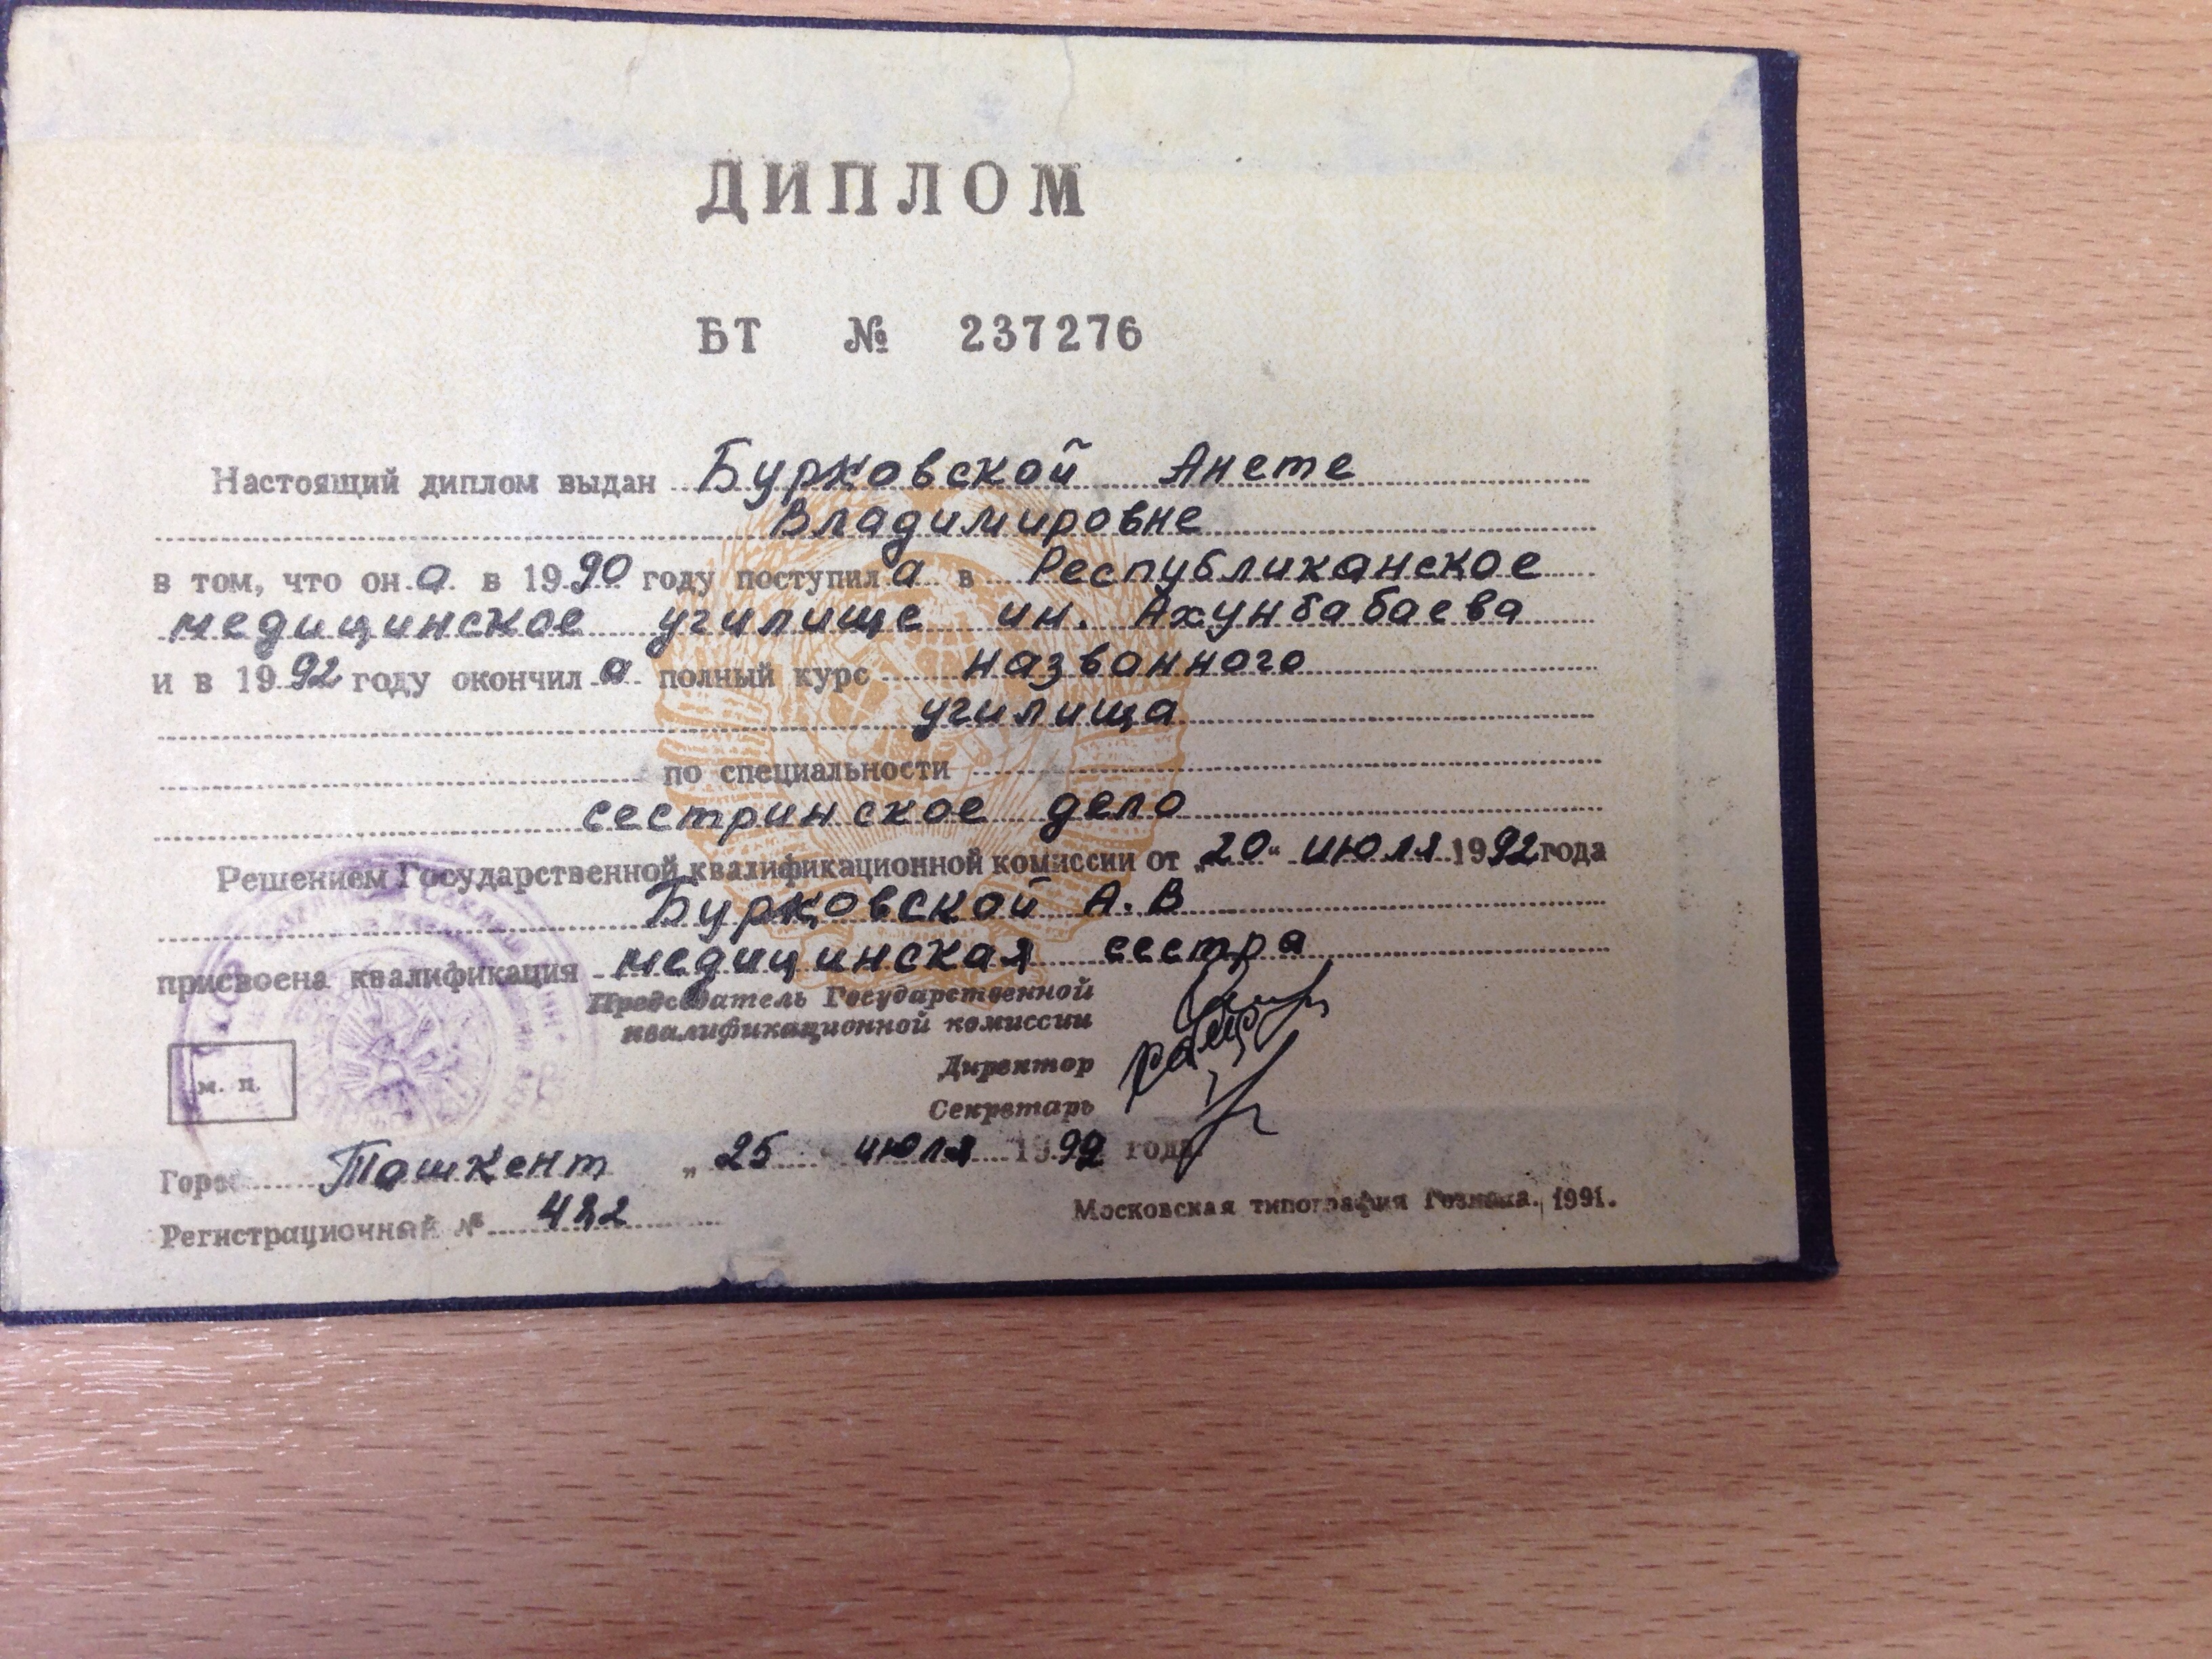 ДИПЛОМ
БТ № 237276
Настоящий диплом выдан Бурковской Анете
Владимировне
в том, что она в 1990 году поступила в Республиканское
медицинское училище им. Ахунбабаева
и в 1992 году окончила полный курс названного
училища
по специальности
сестринское дело
Решением Государственной квалификационной комиссии от „20“ июля 1992 года
Бурковской А.В
присвоена квалификация медицинская сестра
Председатель Государственной
квалификационной комиссии
Директор
Секретарь
м. п.
Город Ташкент „25 июля 1992 года
Регистрационный №
Московская типография Гознака. 1991.